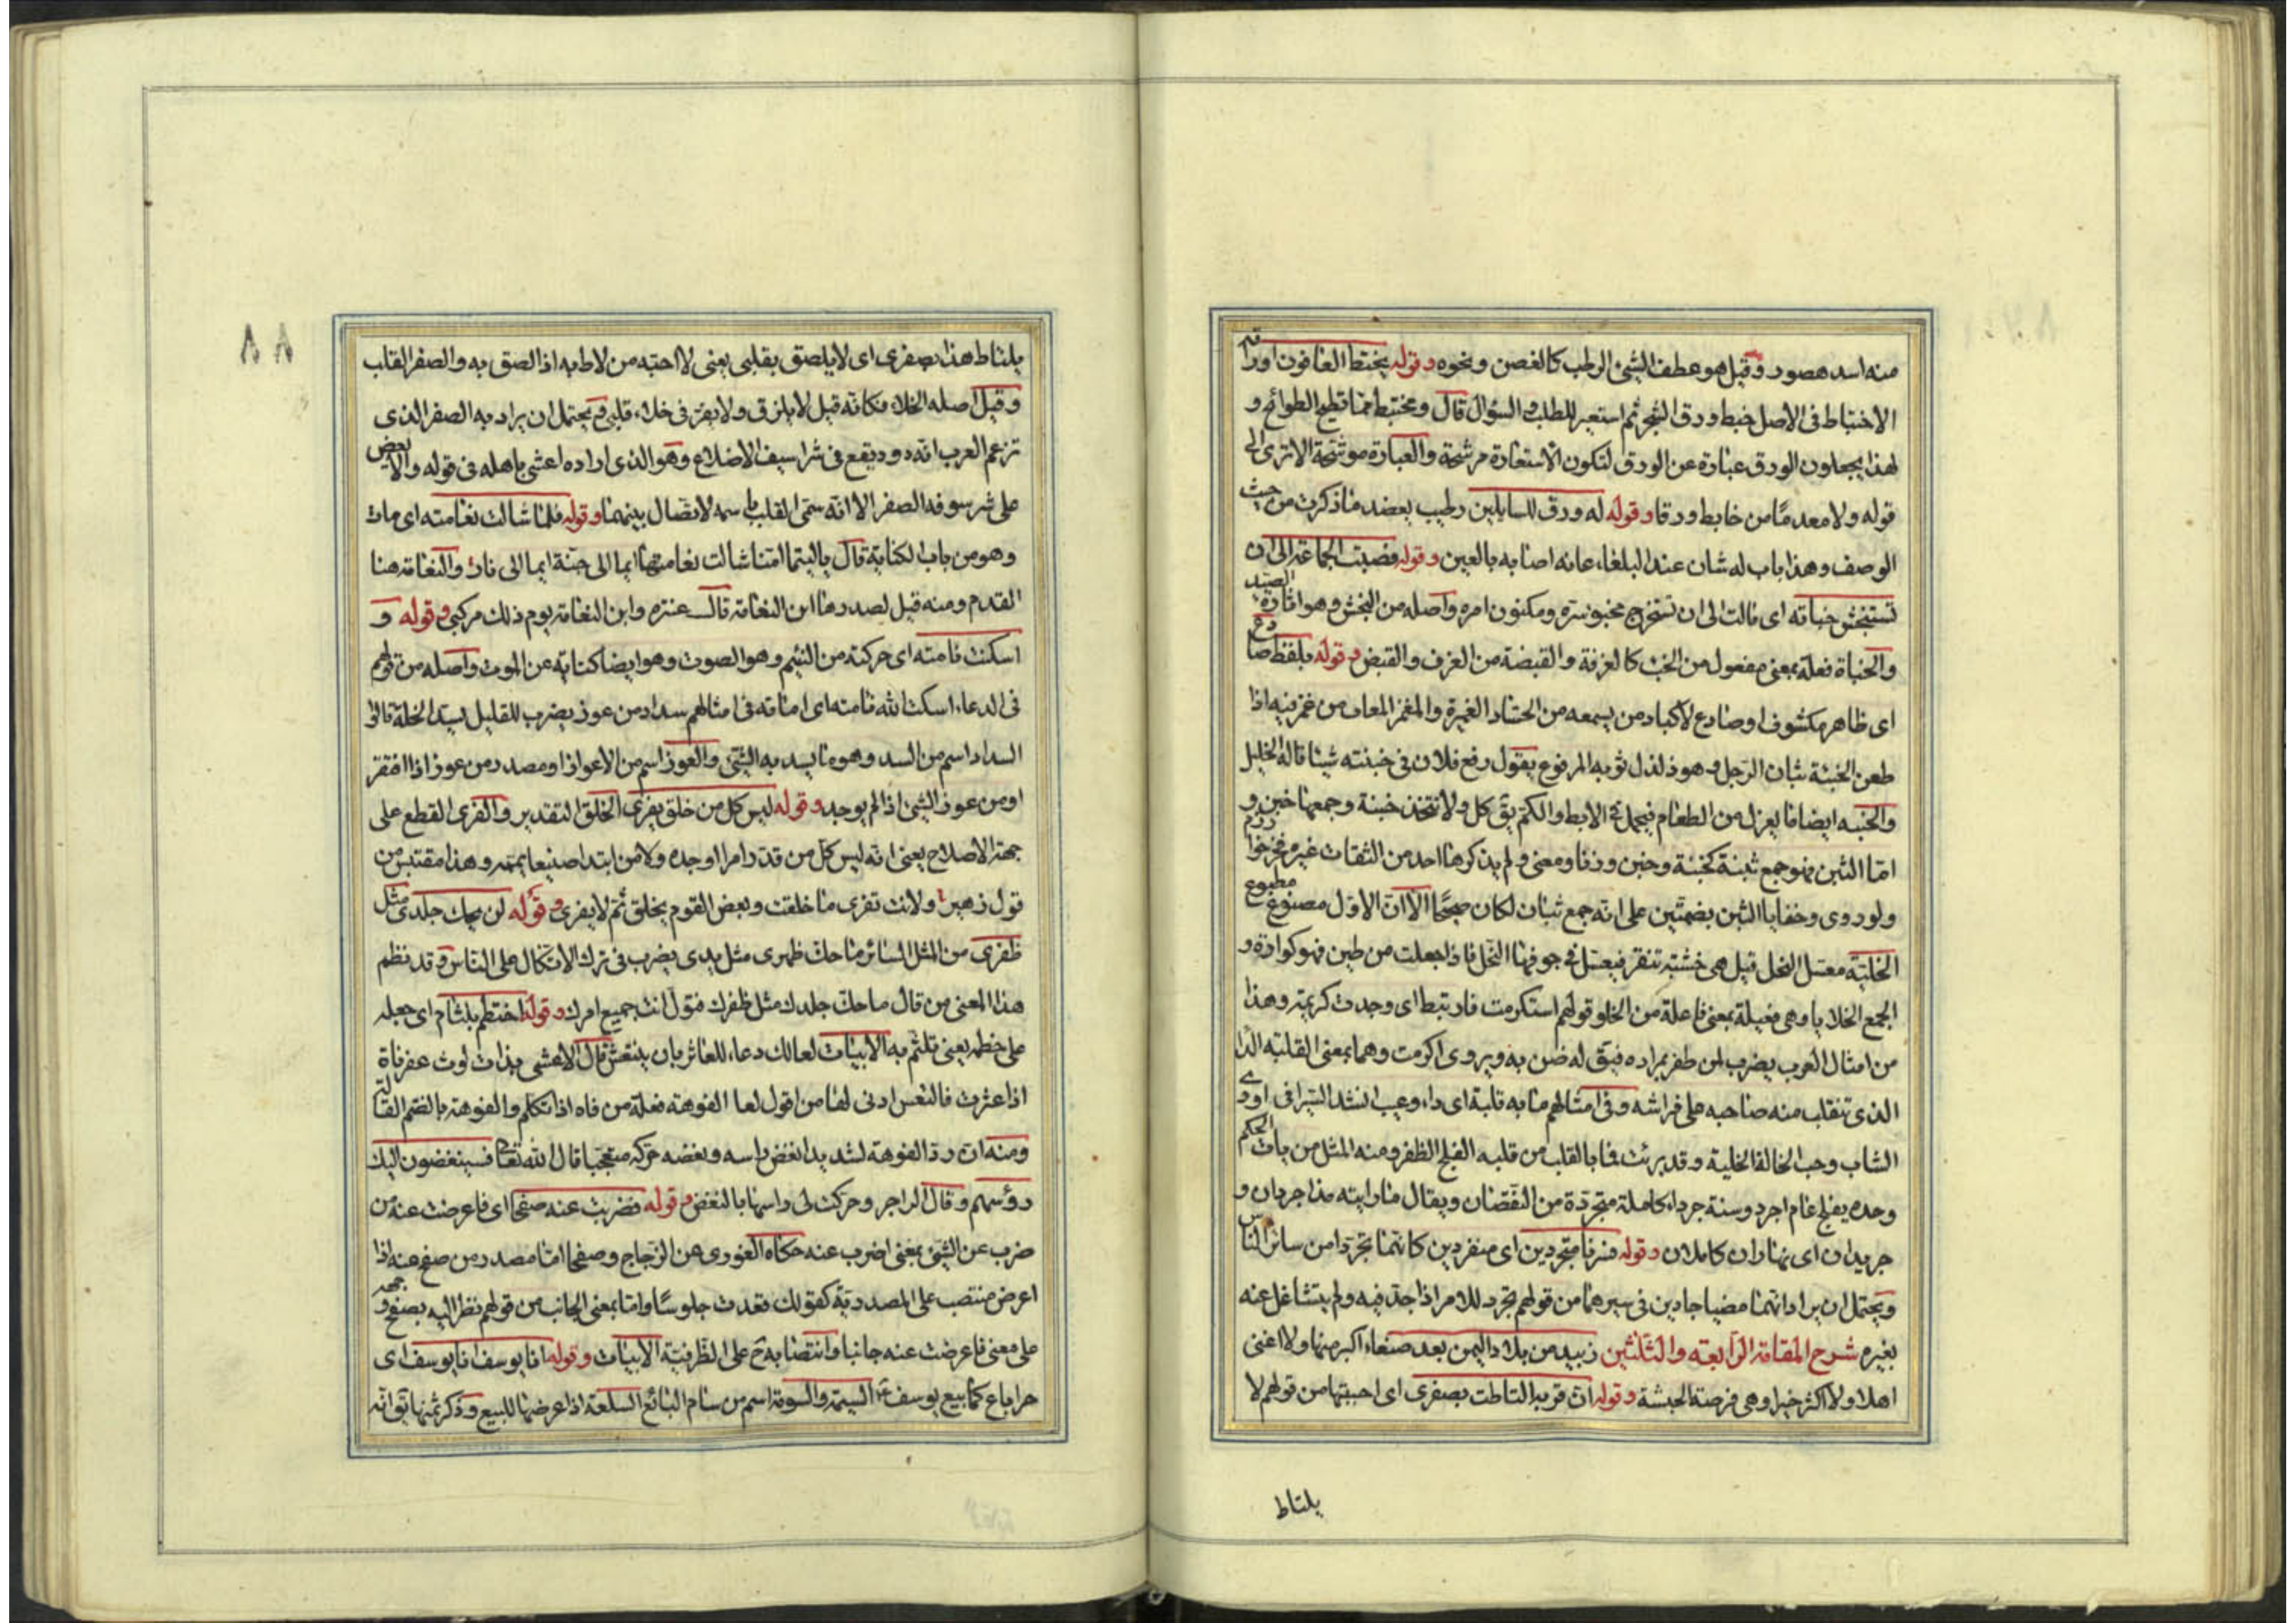 منه اسد هصور وقيل هو عطف الشئ الرطب كالغصن ونحوه وقوله يختبط العافون اوراقه
الاختباط فى الاصل خبط ورق الشجر ثم استعير للطلب والسؤال قال ومختبط مما تطيح الطوائح و
لهذا يجعلون الورق عبارة عن الورق لتكون الاستعارة مرشحة والعبارة موشحة الا ترى الى
قوله ولا معدما من خابط ورقا وقوله له ورق للسايلين رطيب بعضد ما ذكرت من حيث
الوصف وهذا باب له شان عند البلغاء عانه اصابه بالعين وقوله فصبت الجماعة الى ان
تستنجش خباته اى مالت الى ان تستخرج مخبو سره ومكنون امره واصله من النجش وهو اثارة الصيد
والخباة فعلة بمعنى مفعول من الخبء كالغرفة والقبضة من الغرف والقبض وقوله بلفظ صادع
اى ظاهر مكشوف او صادع لاكباد من يسمعه من الحساد الغميزة والمغمز المعاب من غمز فيه اذا
طعن الخبنة ثبان الرجل وهو ذلذل ثوبه المرفوع يقول رفع فلان فى خبنته شيئا قاله الخليل
والخبنه ايضا ما يعزل من الطعام فيحمل تحت الابط والكم يق كل ولا تتخذ خبنة وجمعها خبن و
اما الثبن فهو جمع ثبنة كخبنة وخبن وزنا ومعنى ولم يذكرها احد من الثقات غير
ولو روى وخفايا الثبن بضمتين على انه جمع ثبان لكان صحيحا الا ان الاول مصنوع مطبوع
الخلية معسل النحل قيل هى خشبته تنقر فيعسل فى جوفها النحل فاذا جعلت من طين فهو كوارة و
الجمع الخلايا وهى فعيلة بمعنى فاعلة من الخلو قولهم استكرمت فارتبط اى وجدت كريمة وهذا
من امثال العرب يضرب لمن ظفر بمراده فيق له ضن به ويروى اكرمت وهما بمعنى القلبه الدا
الذى تنقلب منه صاحبه على فراشه وفى امثالهم ما به قلبة اى داء وعيب انشد السيرافى اودى
الشاب وحب الخالة الخلبة وقد برئت فما بالقلب من قلبه الفلج الظفر ومنه المثل من يات الحكم
وحده يفلج عام اجرد وسنة جرداء كاملة متجردة من النقصان ويقال ما رايته مذ اجردان و
جريدان اى نهاران كاملان وقوله فسرنا متجردين اى منفردين كانهما تجردا من سائر الناس
ويحتمل ان يراد انهما مضيا جادين فى سيرهما من قولهم تجرد للامر اذا جد فيه ولم يتشاغل عنه
بغيره شرح المقامة الرابعه والثلثين زبيد من بلاد اليمن بعد صنعاء اكبر منها ولا اغنى
اهلا ولا اكثر خيرا وهى فرصة الحبشة وقوله ان قربه التاطت بصفرى اى احببتها من قولهم لا
يلتاط
٨٨
يلتاط هذا بصفرى اى لا يلصق بقلبى يعنى لا احبه من لاط به اذا لصق به والصفر القلب
وقيل اصله الخلاء فكانه قيل لا يلزق ولا يقر فى خلاء قلبى ويحتمل ان يراد به الصفر الذى
تزعم العرب انه دود يقع فى شراسيف الاضلاع وهو الذى اراده اعشى باهله فى قوله ولا يعض
على شرسوفه الصفر الا انه سمى القلب باسمه لاتصال بينهما وقوله فلما شالت نعامته اى مات
وهو من باب الكناية قال يا ليتما امنا شالت نعامتها ايما الى جنة ايما الى نار والنعامة هنا
القدم ومنه قيل لصدرها ابن النعامة قال عنتره وابن النعامة يوم ذلك مركبى وقوله و
اسكنت نامته اى حركته من النئيم وهو الصوت وهو ايضا كناية عن الموت واصله من قولهم
فى الدعاء اسكت الله نامته اى اماته فى امثالهم سداد من عوز يضرب للقليل يسد الخلة قالوا
السداد اسم من السد وهو ما يسد به الشئ والعوز اسم من الاعواز او مصدر من عوز اذا افتقر
او من عوز الشئ اذا لم يوجد وقوله ليس كل من خلق يفرى الخلق التقدير والفرى القطع على
جهة الاصلاح يعنى انه ليس كل من قدر امرا اوجده ولا من ابتدا صنيعا يتمه وهذا مقتبس من
قول زهير ولانت تفرى ما خلقت وبعض القوم يخلق ثم لا يفرى وقوله لن يحك جلدى مثل
ظفرى من المثل السائر ما حك ظهرى مثل يدى يضرب فى ترك الاتكال على الناس وقد نظم
هذا المعنى من قال ما حك جلدك مثل ظفرك فتول انت جميع امرك وقوله اختطم بلثام اى جعله
على خطمه يعنى تلثم به الابيات لعا لك دعاء للعاثر بان ينتعش قال الاعشى بذات لوث عفرناة
اذا عثرت فالتعس ادنى لها من اقول لعا الفوهته فعلة من فاه اذا تكلم والفوهة بالضم القالة
ومنه ان رد الفوهة لشديد انغض راسه ونغضه حركه متعجبا قال الله تعا فسينغضون اليك
رؤسهم وقال الراجز وحركت لى راسها بالنغض وقوله فضربت عنه صفحا اى فاعرضت عنه من
ضرب عن الشئ بمعنى اضرب عنه حكاه الغورى عن الزجاج وصفحا اما مصدر من صفح عنه اذا
اعرض منتصب على المصدرية كقولك قعدت جلوسا واما بمعنى الجانب من قولهم نظر اليه بصفح وجهه
على معنى فاعرضت عنه جانبا وانتصابه ح على الظرفية الابيات وقوله انا يوسف انا يوسف اى
حرا باع كما بيع يوسف ع السيمة والسومة اسم من سام البائع السلعة اذا عرضها للبيع وذكر ثمنها يق انه